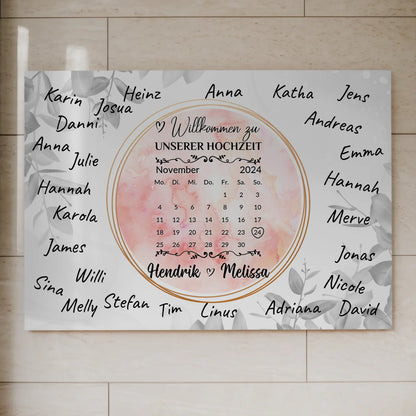 Karin
Josua
Heinz
Anna
Katha
Jens
Danni
Andreas
Anna
Julie
Emma
Hannah
Hannah
Karola
Merve
James
Jonas
Willi
Sina
Nicole
Melly
Stefan
Tim
Linus
Adriana
David
Willkommen zu
UNSERER HOCHZEIT
November 2024
Mo. Di. Mi. Do. Fr. Sa. So.
1 2 3
4 5 6 7 8 9 10
11 12 13 14 15 16 17
18 19 20 21 22 23 24
25 26 27 28 29 30
Hendrik ♡ Melissa